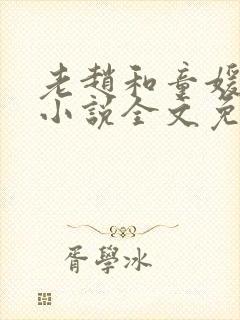 老趙和童媛
小說全文免
胥學冰